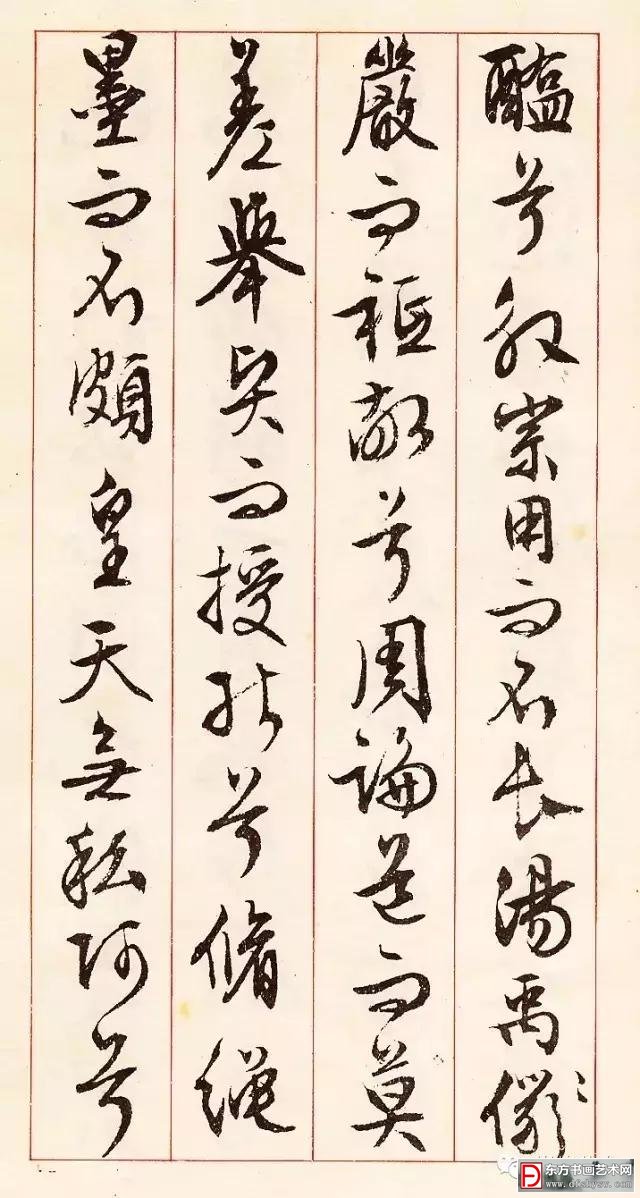 醢兮殷宗用而不長湯禹儼
嚴而祗敬兮周論道而莫
差舉賢而授能兮脩繩
墨而不頗皇天無私阿兮
东方书画艺术网